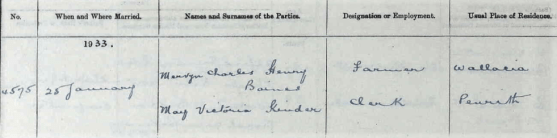 No. When and Where Married. Names and Surnames of the Parties. Designation or Employment. Usual Place of Residence.
1933.
Mervyn Charles Henry Farmer Wallacia
4575 25 January Baines
May Victoria Kinder Clerk Penrith